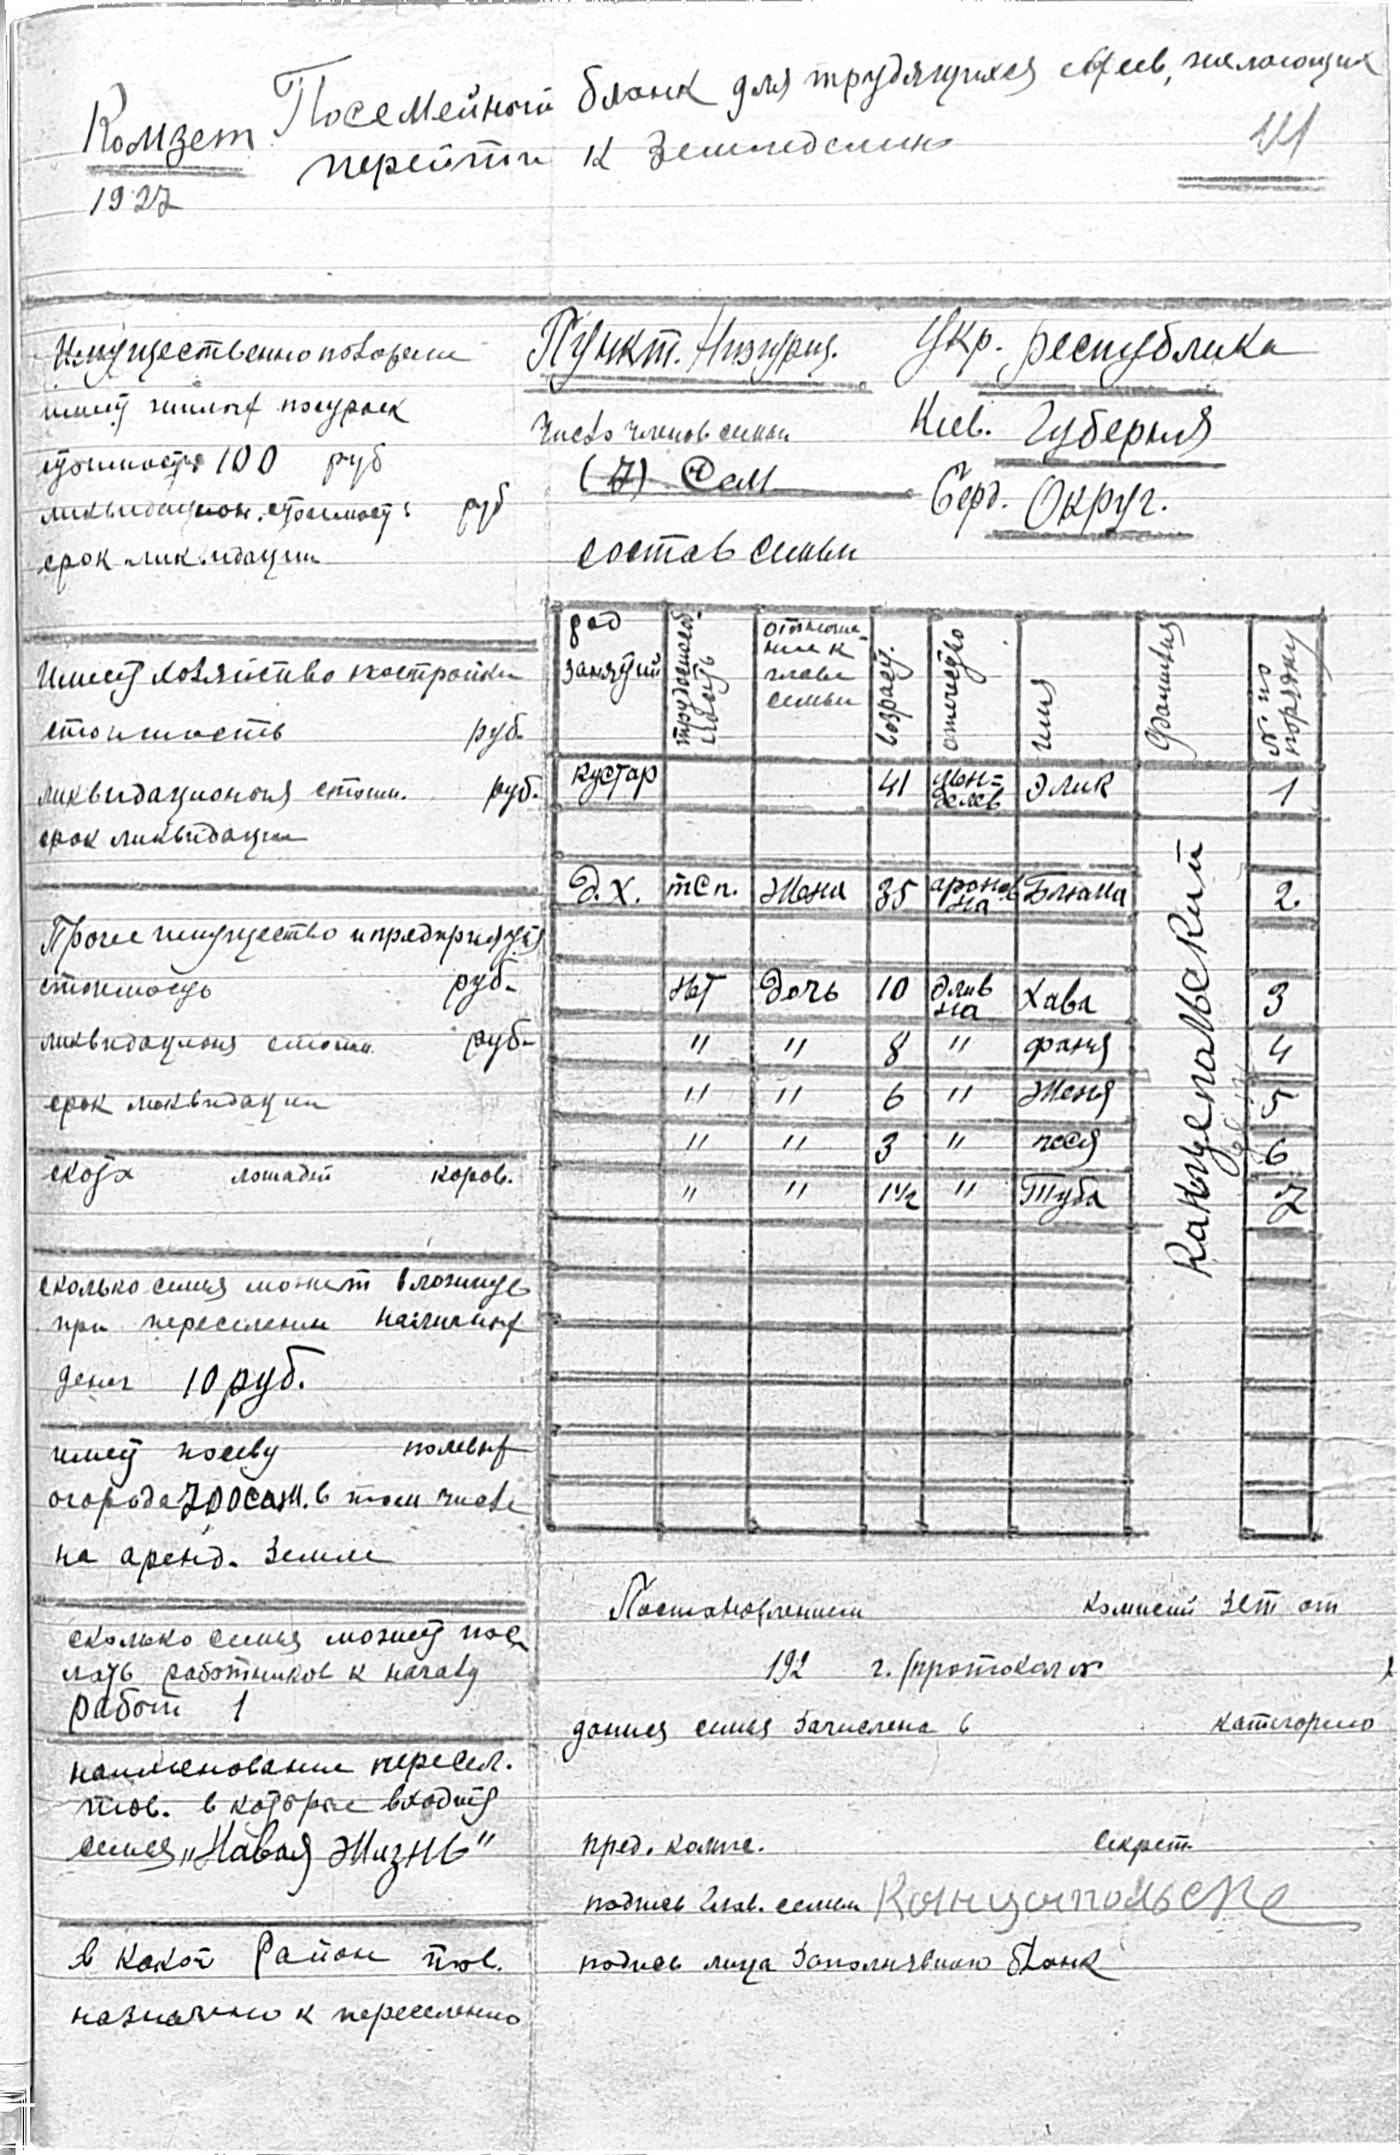 Комзет
1927
Посемейный бланк для трудящихся евреев, желающих
перейти к земледелию
Имущественно
имеет жилых построек
стоимость 100 руб
ликвидацион. стоимость руб
срок ликвидации
Имеет хозяйство постройки
стоимость руб.
ликвидационая стоим. руб.
срок ликвидации
Прочее имущество и предприятия
стоимость руб.
ликвидационя стоим. руб.
срок ликвидации
скота лошадей коров.
сколько семья может вложить
при переселении наличных
денег 10 руб.
имеет посеву полевых
огорода 700 саж. в том числе
на аренд. земле
сколько семья может пос
лать работников к началу
работ 1
наименование пересел.
тов. в которые входит
семья „Новая Жизнь"
в какой район тов.
назначено к переселению
Пункт.
Число членов семьи
(7) Сем
состав семьи
Укр. республика
Киев. Губерния
Берд. Округ.
род занятий трудоспособность отношение к главе семьи возраст. отчество имя Фамилия № по порядку
кустар 41 Мен-делев Элик 1
Канцепальский
Д. Х. тсп. Жена 35 ароновна Блюма 2.
Нет Дочь 10 Эливна Хава 3
" " 8 " фаня 4
" " 6 " Женя 5
" " 3 " песя 6
" " 1 1/2 " Туба 7
Постановлением комисий зет от
192 г. (протокол №
)
данная семья зачислена в категорию
пред. комис. Секрет.
подпись глав. семьи Канцапольске
подпись лица заполнявшего бланк